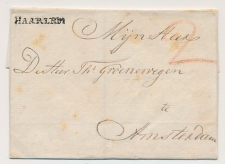 HAARLEM
Mijn Heer
De Heer Th. Groenewegen
te
Amsterdam